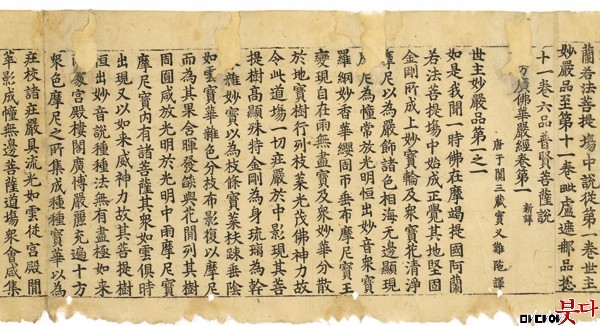 蘭若法菩提場中說從第一世主
妙嚴品至第十一卷毗盧遮那品㧾
十一卷六品普賢菩薩說
方廣佛華嚴經卷第一 新譯
唐于闐三藏實叉難陁譯
世主妙嚴品第一之一
如是我聞一時佛在摩竭提國阿蘭
若法菩提場中始成正覺其地堅固
金剛所成上妙寶輪及衆寶花清淨
摩尼以為嚴飾諸色相海無邊顯現
摩尼為幢常放光明恒出妙音衆寶
羅網妙香華纓周帀垂布摩尼寶王
變現自在雨無盡寶及衆妙華分散
於地寶樹行列枝葉光茂佛神力故
令此道場一切莊嚴於中影現其菩
提樹高顯殊特金剛為身瑠璃為幹
雜妙寶以為枝條寶葉扶踈垂蔭
如雲寶華雜色分枝布影復以摩尼
而為其果含暉發焰與花間列其樹
周圓咸放光明於光明中雨摩尼寶
摩尼寶內有諸菩薩其衆如雲俱時
出現又以如來威神力故其菩提樹
恒出妙音說種種法無有盡極如來
處宮殿樓閣廣博嚴麗充遍十方
衆色摩尼之所集成種種寶華以為
莊校諸莊嚴具流光如雲從宮殿間
萃影成幢無邊菩薩道場衆會咸集
미디어붓다